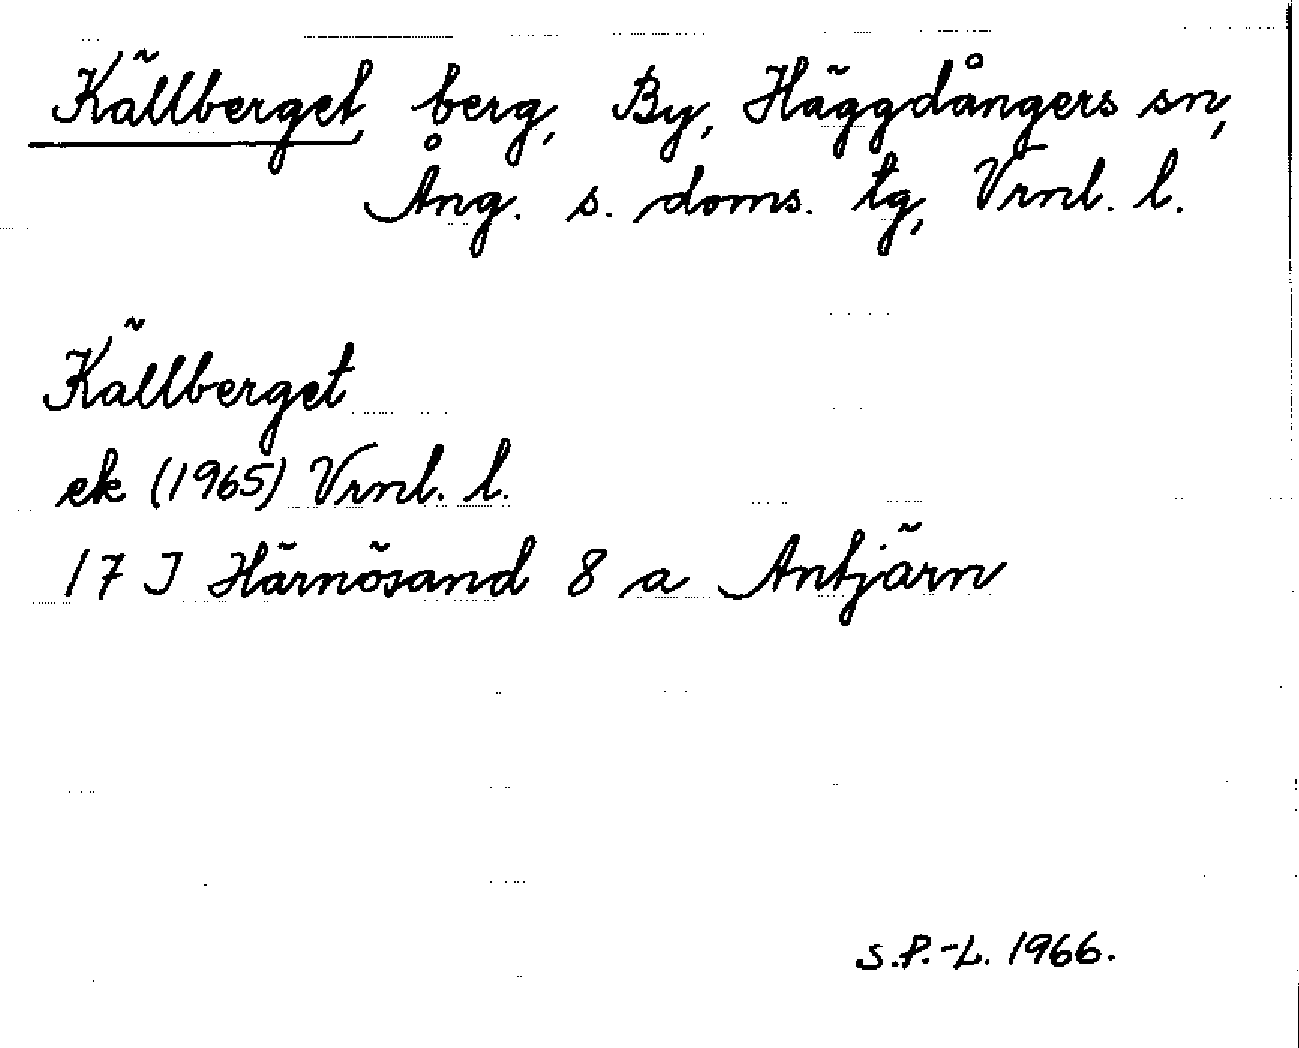 Källberget, berg, By, Häggdångers sn,
Ång. s. doms. tg, Vrnl. l.
Källberget
ek (1965) Vrnl. l.
17 I Härnösand 8 a Antjärn
S.P.-L. 1966.